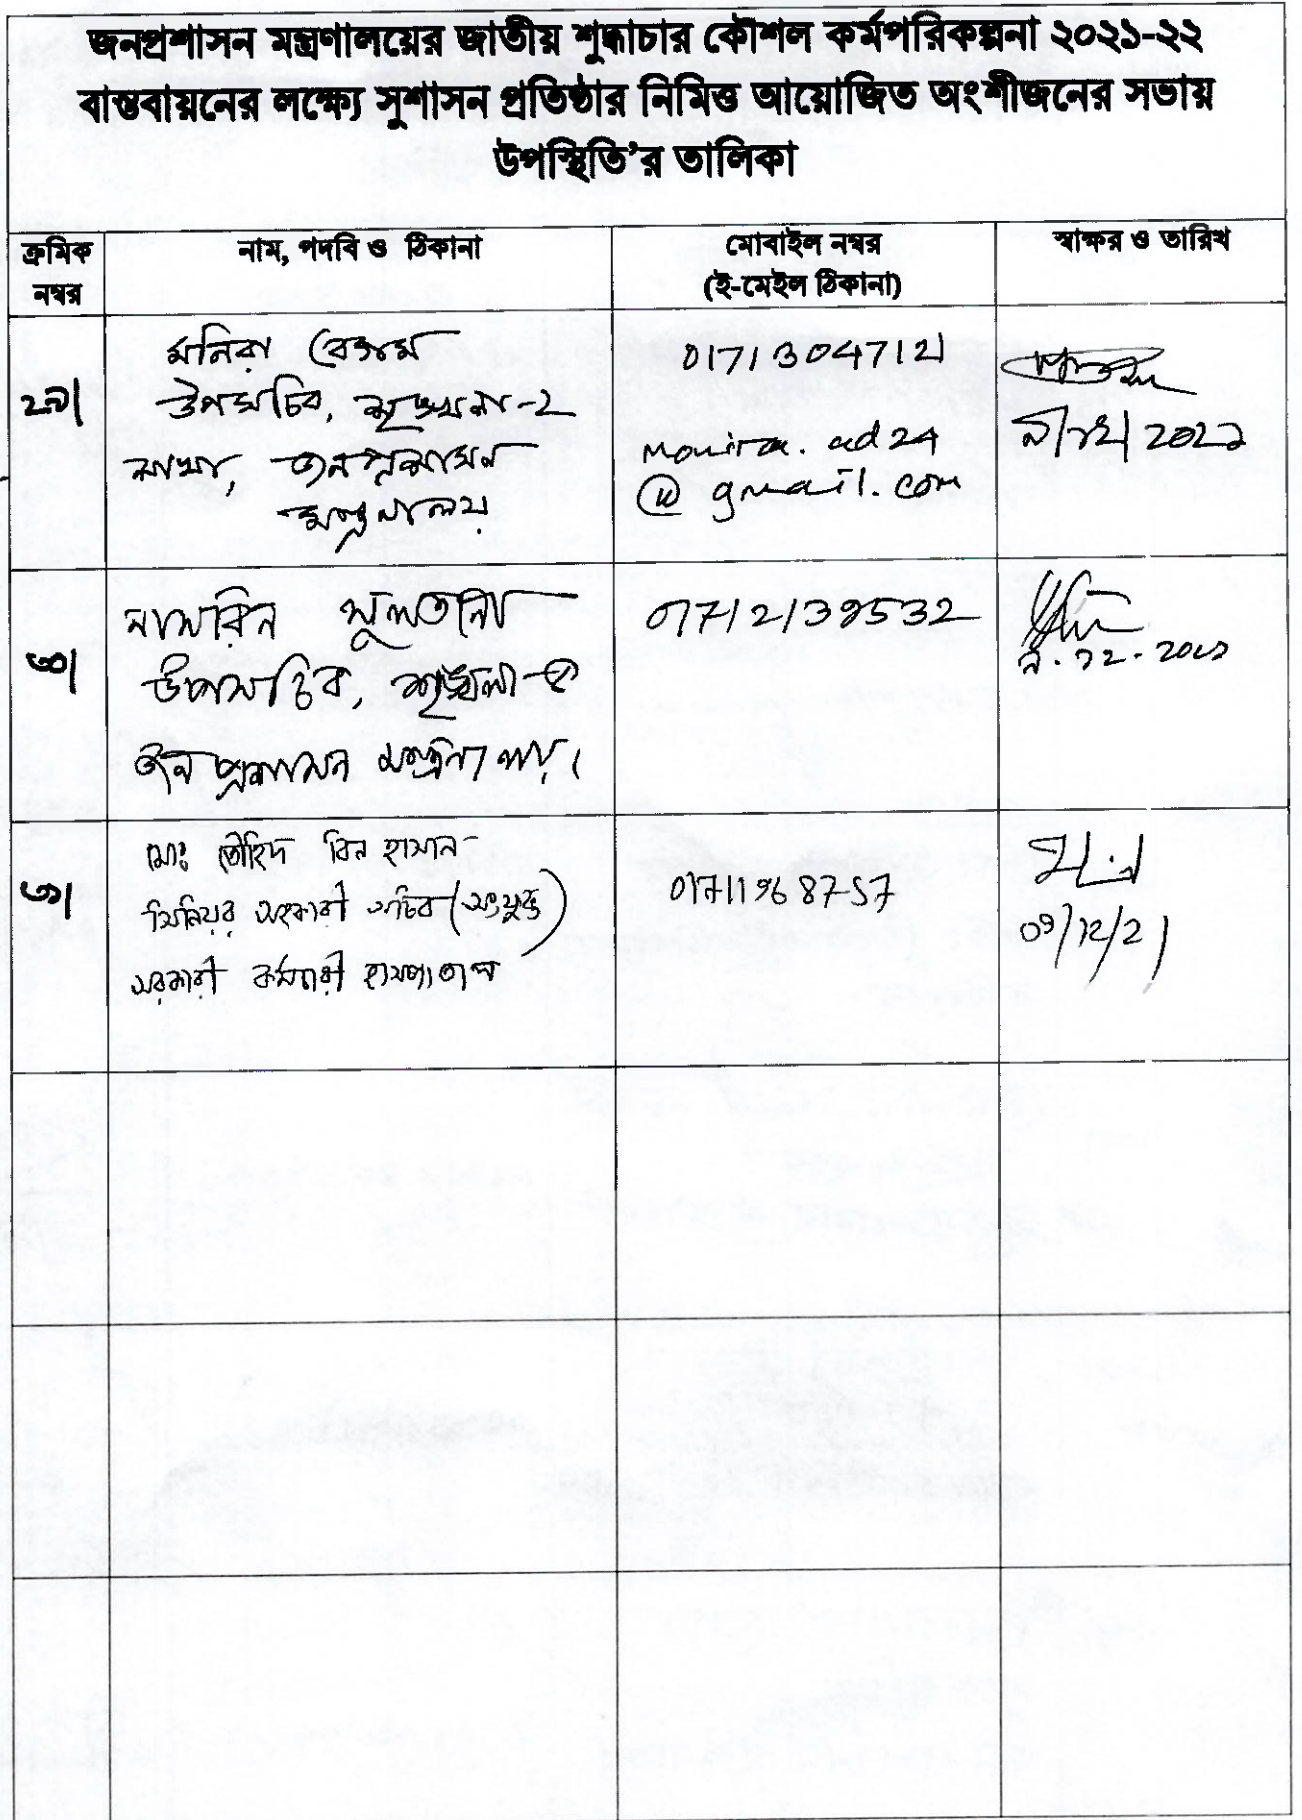 জনপ্রশাসন মন্ত্রণালয়ের জাতীয় শুদ্ধাচার কৌশল কর্মপরিকল্পনা ২০২১-২২
বাস্তবায়নের লক্ষ্যে সুশাসন প্রতিষ্ঠার নিমিত্ত আয়োজিত অংশীজনের সভায়
উপস্থিতি'র তালিকা
ক্রমিক নম্বর
নাম, পদবি ও ঠিকানা
মোবাইল নম্বর
(ই-মেইল ঠিকানা)
স্বাক্ষর ও তারিখ
২৯।
মনিরা বেগম
উপসচিব, শৃঙ্খলা-২
শাখা, জনপ্রশাসন
মন্ত্রণালয়
01713047121
monira.ad24
@gmail.com
৯/১২/২০২১
৩০।
নাসরিন সুলতানা
উপসচিব, শৃঙ্খলা-
জনপ্রশাসন মন্ত্রণালয়।
৯.১২.২০২১
৩১।
মোঃ তৌহিদ বিন হাসান
সিনিয়র সহকারী সচিব (সংযুক্ত)
সরকারী কর্মচারী হাসপাতাল
01711968757
09/12/21